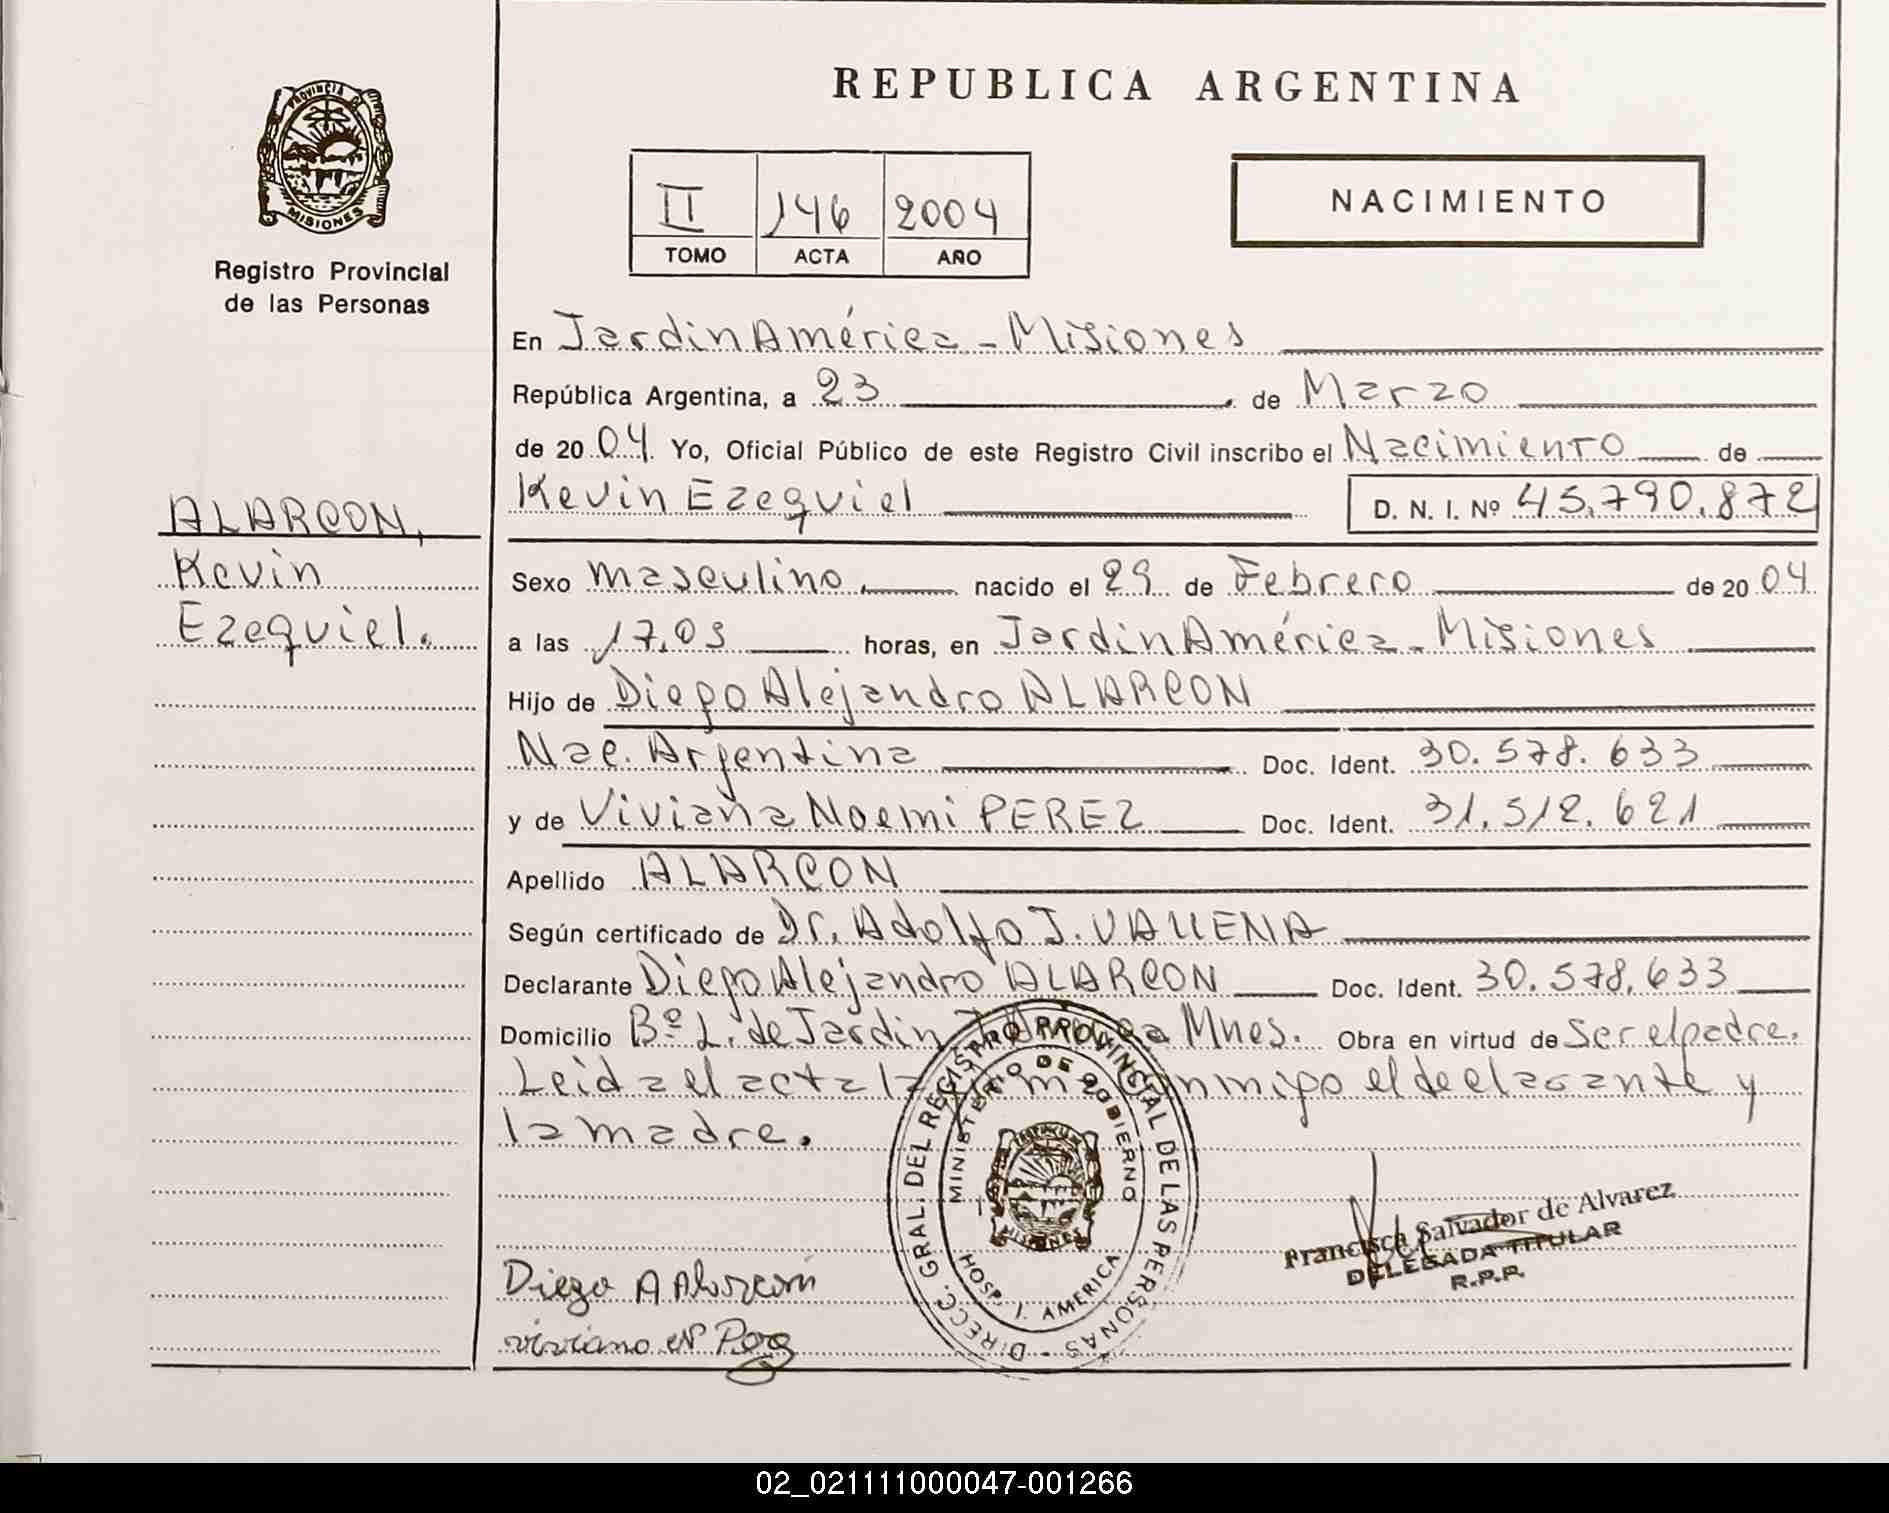 REPUBLICA ARGENTINA
PROVINCIA D
MISIONES
Registro Provincial
de las Personas
II 146 2004
TOMO ACTA AÑO
NACIMIENTO
En Jardin América - Misiones
República Argentina, a 23 de Marzo
de 20 04. Yo, Oficial Público de este Registro Civil inscribo el Nacimiento de
Kevin Ezequiel D. N. I. Nº 45.790.872
ALARCON,
Kevin
Ezequiel.
Sexo masculino, nacido el 29 de Febrero de 20 04
a las 17,03 horas, en Jardin América - Misiones
Hijo de Diego Alejandro ALARCON
Nac. Argentina Doc. Ident. 30.578.633
y de Viviana Noemi PEREZ Doc. Ident. 31.512.621
Apellido ALARCON
Según certificado de Dr. Adolfo J. VALLENA
Declarante Diego Alejandro ALARCON Doc. Ident. 30.578.633
Domicilio Bº L. de Jardin Mnes. Obra en virtud de Ser el padre.
Leida el acta la conmigo el declarante y
la madre.
DIRECC. GRAL. DEL REGISTRO PROVINCIAL DE LAS PERSONAS -
MINISTERIO DE GOBIERNO
MISIONES
HOSP. J. AMERICA
Francisca Salvador de Alvarez
DELEGADA TITULAR
R.P.P.
Diego A Alarcon
viviana N Perez
02_021111000047-001266